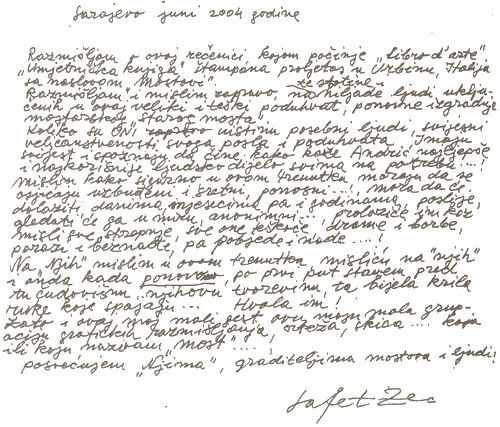 Sarajevo juni 2004 godine
Razmišljam o ovoj rečenici, kojom počinje „libro d'arte"
„Umjetnička knjiga" štampana proljetos u Urbinu, Italija
sa naslovom „Mostovi"
te stotine
Razmišljam i mislim zapravo, na hiljade ljudi uklju-
čenih u ovaj veliki i teški poduhvat, ponovne izgradnje
mostarskog „Starog mosta"
Koliko su ONI uistinu posebni ljudi, svijesni
veličanstvenosti svoga posla i poduhvata. Imaju
svijest i spoznaju da čine, kako kaže Andrić najljepše
i najkorisnije ljudsko djelo svima na potrebu...!
Mislim kako sigurno u ovom trenutku mogu da se
osjećaju uzbuđeni i sretni, ponosni...! mora da će
dolaziti danima, mjesecima pa i godinama, poslije,
gledati će ga u miru, anonimni... prolaziće im kroz
misli sve strepnje sve one krize, drame i borbe,
porazi i beznađe, pa pobjede i nade....!
Na „Njih" mislim u ovom trenutku misliću na „njih"
i onda kada ponovo po prvi put stanem pred
tu čudovišnu njihovu tvorevinu, ta bijela krila
ruke koje spajaju Hvala im!
Zato i ovaj moj mali gest ovu moju malu grup-
aciju grafičkih razmišljanja, crteža, skica.... koja
ili koju nazvah „most"....
posvećujem „Njima", graditeljima mostova i ljudi!
Safet Zec